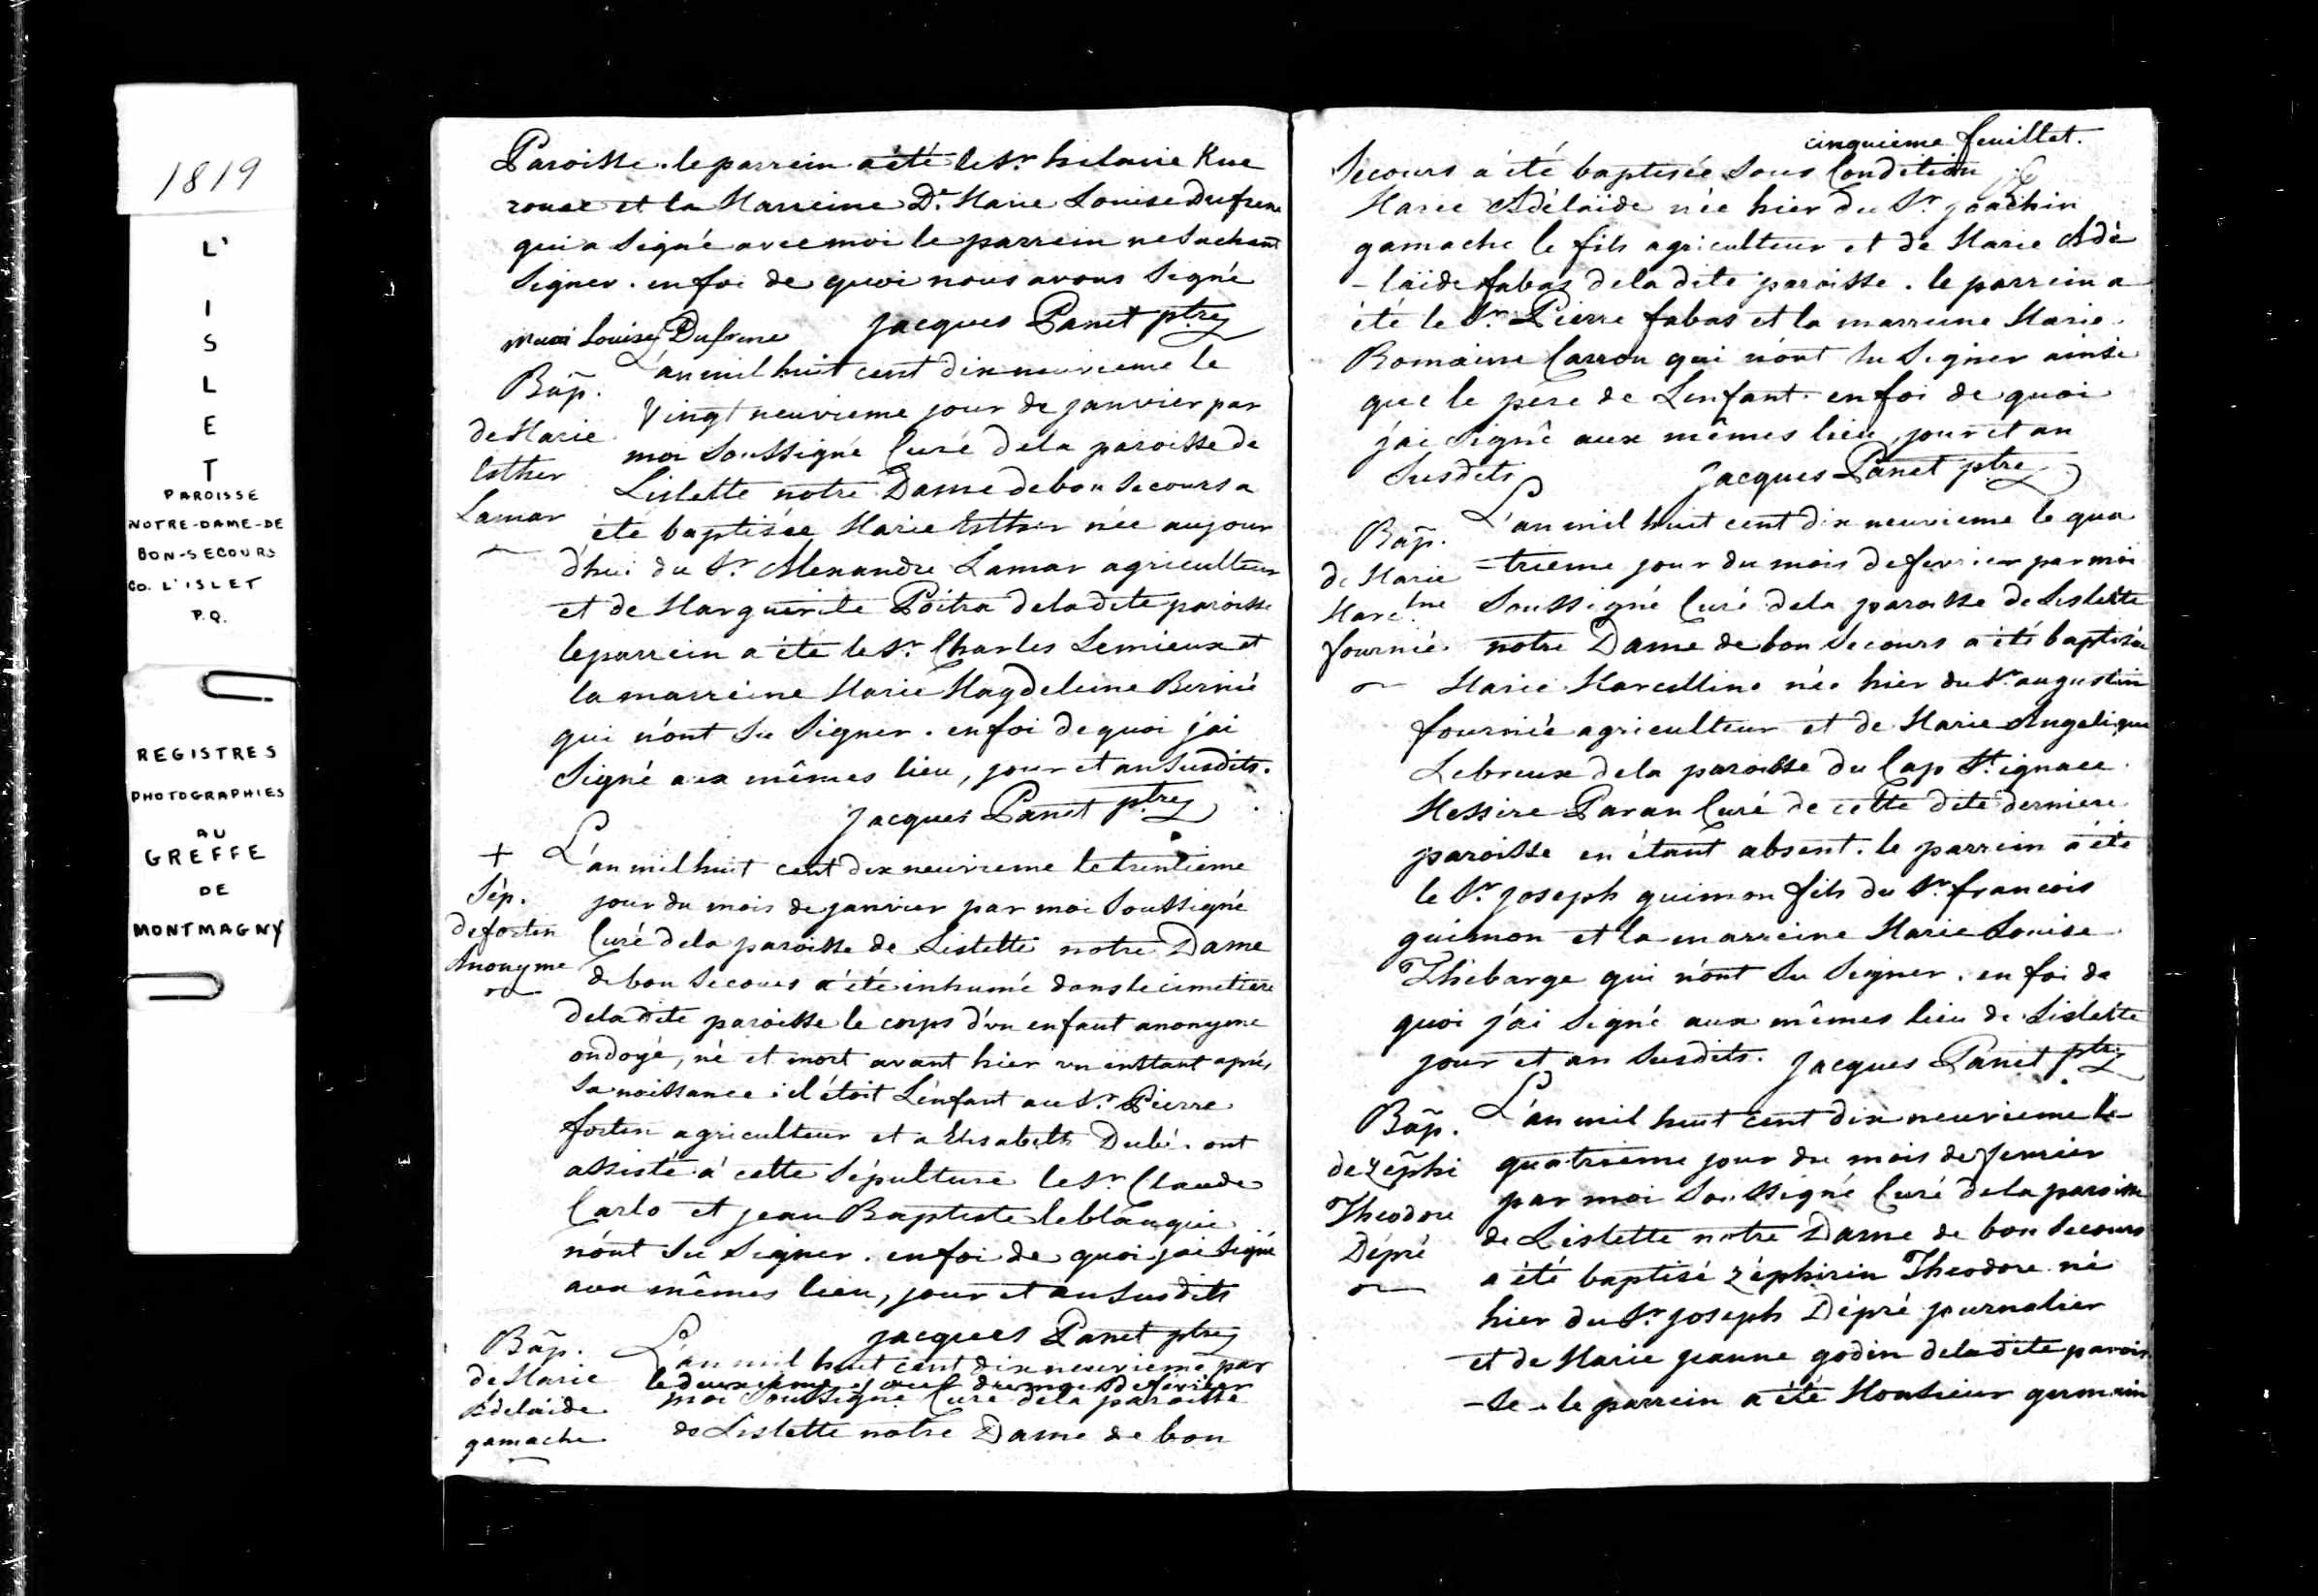 1819
L'
I
S
L
E
T
PAROISSE
NOTRE-DAME-DE
BON-SECOURS
CO. L'ISLET
P.Q.
REGISTRES
PHOTOGRAPHIES
AU
GREFFE
DE
MONTMAGNY
Paroisse. le parrein a été le Sr. hilaire Kue
rouac et la Marreine De. Marie Louise Dufrene
qui a Signé avec moi le parrein ne Sachant
Signer. en foi de quoi nous avons Signé
Louise Dufrene Jacques Panet ptre
Bap.
de Marie
Esther
Lamar
L'an mil huit cent dix neuvieme le
Vingt neuvieme jour de janvier par
moi Soussigné Curé dela paroisse de
Lislette notre Dame de bon Secours a
été baptisée Marie Esther née aujour
d'hui du Sr. Alexandre Lamar agriculteur
et de Marguerite Poitra dela dite paroisse
le parrein a été le Sr. Charles Lemieux et
la marreine Marie Magdeleine Bernié
qui n'ont Su Signer. en foi de quoi j'ai
Signé aux mêmes lieu, jour et an Susdits.
Jacques Panet ptre
+
Sép.
de fortin
Anonyme
L'an mil huit cent dix neuvieme le trentieme
jour du mois de janvier par moi Soussigné
Curé dela paroisse de Lislette notre Dame
de bon Secours a été inhumé dans le cimetiere
dela dite paroisse le corps d'un enfant anonyme
ondoyé, né et mort avant hier un instant après
Sa naissance. il étoit L'enfant au Sr. Pierre
fortin agriculteur et a Elisabeth Dubé. ont
assisté a cette Sépulture le Sr. Claude
Carlo et jean Baptiste leblanc qui
n'ont Su Signer. en foi de quoi j'ai Signé
aux mêmes lieu, jour et an Susdits
Jacques Panet ptre
Bap.
de Marie
Adelaide
gamache
L'an mil huit cent dix neuvieme par
le deuxieme jour du mois de fevrier
moi Soussigné Curé dela paroisse
de Lislette notre Dame de bon
cinquieme feuillet.
Secours a été baptisée Sous Condition
Marie Adélaïde née hier du Sr. joachin
gamache le fils agriculteur et de Marie Adé
-laïde fabas dela dite paroisse. le parrein a
été le Sr. Pierre fabas et la marreine Marie
Romaine Carron qui n'ont Su Signer ainsi
que le pere de L'enfant. en foi de quoi
j'ai Signé aux mêmes lieu, jour et an
Susdits Jacques Panet ptre
Bap.
de Marie
Marcline
fournié
L'an mil huit cent dix neuvieme le qua
=trieme jour du mois de fevrier par moi
Soussigné Curé dela paroisse de Lislette
notre Dame de bon Secours a été baptisée
Marie Marcelline née hier du Sr. augustin
fournié agriculteur et de Marie Angelique
Lebreux dela paroisse du Cap St. ignace
Messire Paran Curé de cette dite derniere
paroisse en étant absent. le parrein a été
le Sr. joseph guimon fils du Sr. francois
guimon et la marreine Marie Louise
Thibarge qui n'ont Su Signer. en foi de
quoi j'ai Signé aux mêmes lieu de Lislette
jour et an Susdits. Jacques Panet ptre
Bap.
de Zephi
Theodore
Dépré
L'an mil huit cent dix neuvieme le
quatrieme jour du mois de fevrier
par moi Soussigné Curé dela paroisse
de Lislette notre Dame de bon Secours
a été baptisé Zéphirin Theodore né
hier du Sr. joseph Dépré journalier
et de Marie jeanne godin dela dite parois
-se. le parrein a été Monsieur germain